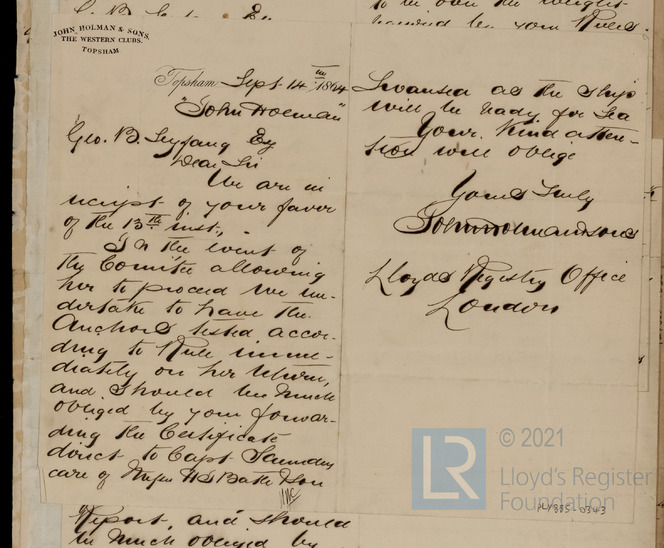 to be own the weight
JOHN HOLMAN & SONS,
THE WESTERN CLUBS,
TOPSHAM.
Topsham Sept 14th 1864
"John Holman"
Geo. B. Seyfang Esq
Dear Sir
We are in
receipt of your favor
of the 13th inst.,
In the event of
the Comittee allowing
her to proceed we un-
dertake to have the
Anchors tested accor-
ding to Rule imme-
diately on her return,
and should be much
obliged by your forwar-
ding the Certificate
direct to Capt Saunders
care of H S Bath & Son
Swansea as the Ship
will be ready for Sea
Your Kind atten-
tion will oblige
Yours truly
John Holman and Sons
Lloyds Registry Office
London
Report, and should
be much obliged by
LR
© 2021
Lloyd's Register
Foundation